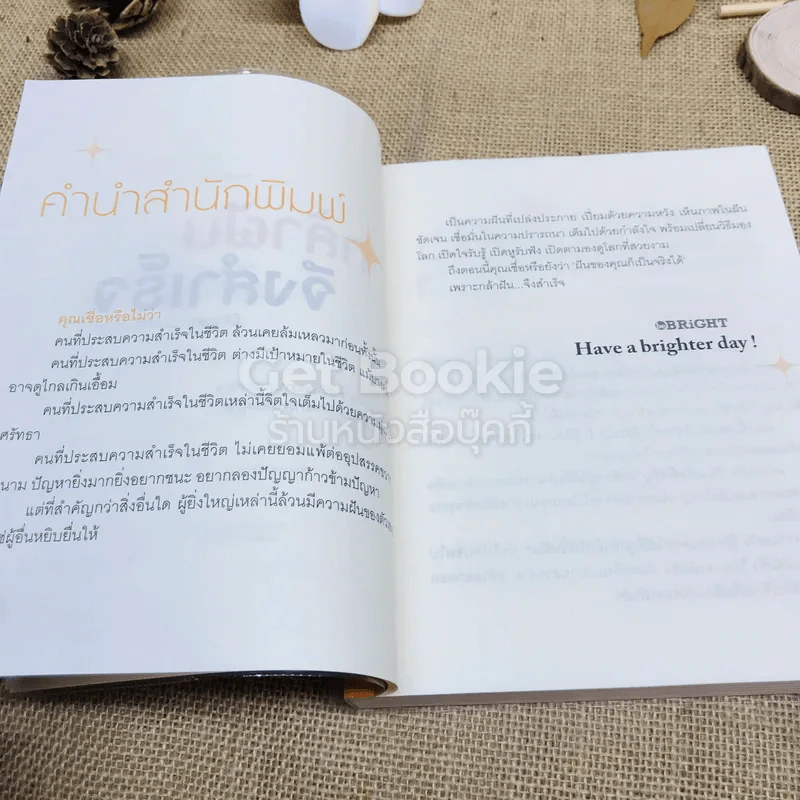 คำนำสำนักพิมพ์
คุณเชื่อหรือไม่ว่า
คนที่ประสบความสำเร็จในชีวิต ล้วนเคยล้มเหลวมาก่อนทั้งนั้น
คนที่ประสบความสำเร็จในชีวิต ต่างมีเป้าหมายในชีวิต
อาจดูไกลเกินเอื้อม
คนที่ประสบความสำเร็จในชีวิตเหล่านี้จิตใจเต็มไปด้วยความ
ศรัทธา
คนที่ประสบความสำเร็จในชีวิต ไม่เคยยอมแพ้ต่ออุปสรรค
นาม ปัญหายิ่งมากยิ่งอยากชนะ อยากลองปัญญาก้าวข้ามปัญหา
แต่ที่สำคัญกว่าสิ่งอื่นใด ผู้ยิ่งใหญ่เหล่านี้ล้วนมีความฝันของ
ผู้อื่นหยิบยื่นให้
เป็นความฝันที่เปล่งประกาย เปี่ยมด้วยความหวัง เห็นภาพในฝัน
ชัดเจน เชื่อมั่นในความปรารถนา เต็มไปด้วยกำลังใจ พร้อมเปลี่ยนวิธีมอง
โลก เปิดใจรับรู้ เปิดหูรับฟัง เปิดตามองดูโลกที่สวยงาม
ถึงตอนนี้คุณเชื่อหรือยังว่า 'ฝันของคุณก็เป็นจริงได้'
เพราะกล้าฝัน...จึงสำเร็จ
BRiGHT
Have a brighter day !
Get Bookie
ร้านหนังสือบุ๊คกี้